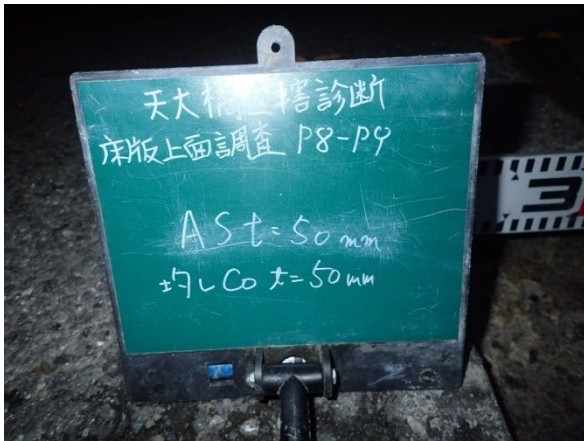 天大橋直轄診断
床版上面調査 P8-P9
ASt=50mm
均しCo t=50mm
3